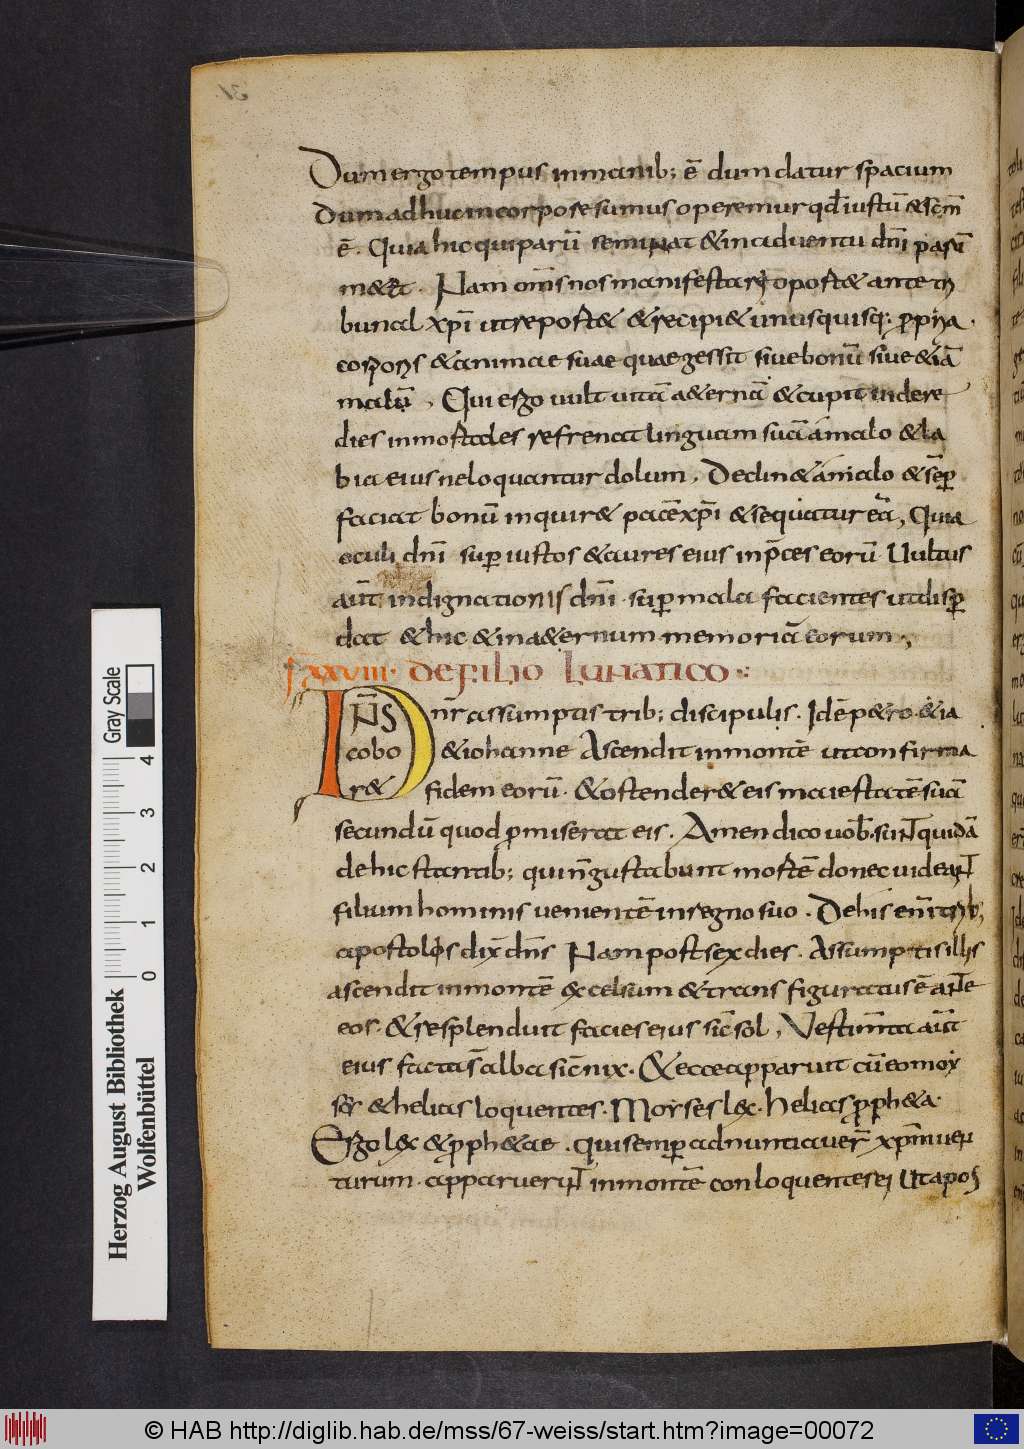 Dum ergo tempus in manib; ē dum datur spacium
dum adhuc in corpore sumus operemur qđ iustū & scm̄
ē. Quia hic qui parū seminat & in aduentu dn̄i parū
m&&. Nam om̄s nos manifestari oport& ante tri
bunal xp̄i ut report& & recipi& unusquisq; ppria
corporis & animae suae quae gessit siue bonū siue &iā
malū. Qui ergo uult uitā a&ernā & cupit uidere
dies inmortales refrenat linguam suā a malo & la
bia eius ne loquantur dolum. Declin& a malo & sēp
faciat bonū inquir& pacē xp̄i & sequatur eā, Quia
oculi dn̄i sup iustos & aures eius in p̄ces eorū Uultus
aūt indignationis dn̄i sup mala facientes ut disp
dat & hic & in a&ernum memoriā eorum;
xxviii. de filio lunatico
DN̄S nr̄ assumptis trib; discipulis. Idē p&ro. & ia
cobo & iohanne Ascendit in montē ut confirma
r& fidem eorū. & ostender& eis maiestatē suā
secundū quod pmiserat eis. Amen dico uob̄. sunt quidā
de hic stantib; qui n̄ gustabunt mortē donec uideant
filium hominis uenientē in regno suo. De his en̄ trib;
apostolis dix̄ dn̄s Nam post sex dies. Assumptis illis
ascendit in montē excelsum & trans figuratus ē ante
eos. & resplenduit facies eius sic̄ sol, Vestim̄ta aūt
eius facta s̄ alba sic̄ nix. & ecce apparuit cū eo moy
ses & helias loquentes. Moyses lex. helias pph&a.
Ergo lex & pph&ae. qui semp adnuntiauer̄ xp̄m uen
turum. apparuerunt in montē conloquentes ei Ut apos
Gray Scale
0 1 2 3 4
Herzog August Bibliothek
Wolfenbüttel
© HAB http://diglib.hab.de/mss/67-weiss/start.htm?image=00072